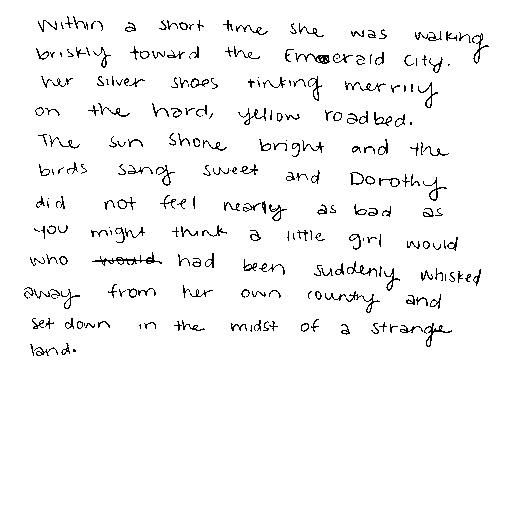 Within a short time she was walking
briskly toward the Emerald City.
Her silver shoes tinking merrily
on the hard, yellow roadbed.
The sun shone bright and the
birds sang sweet and Dorothy
did not feel nearly as bad as
you might think a little girl would
who would had been suddenly whisked
away from her own country and
set down in the midst of a strange
land.